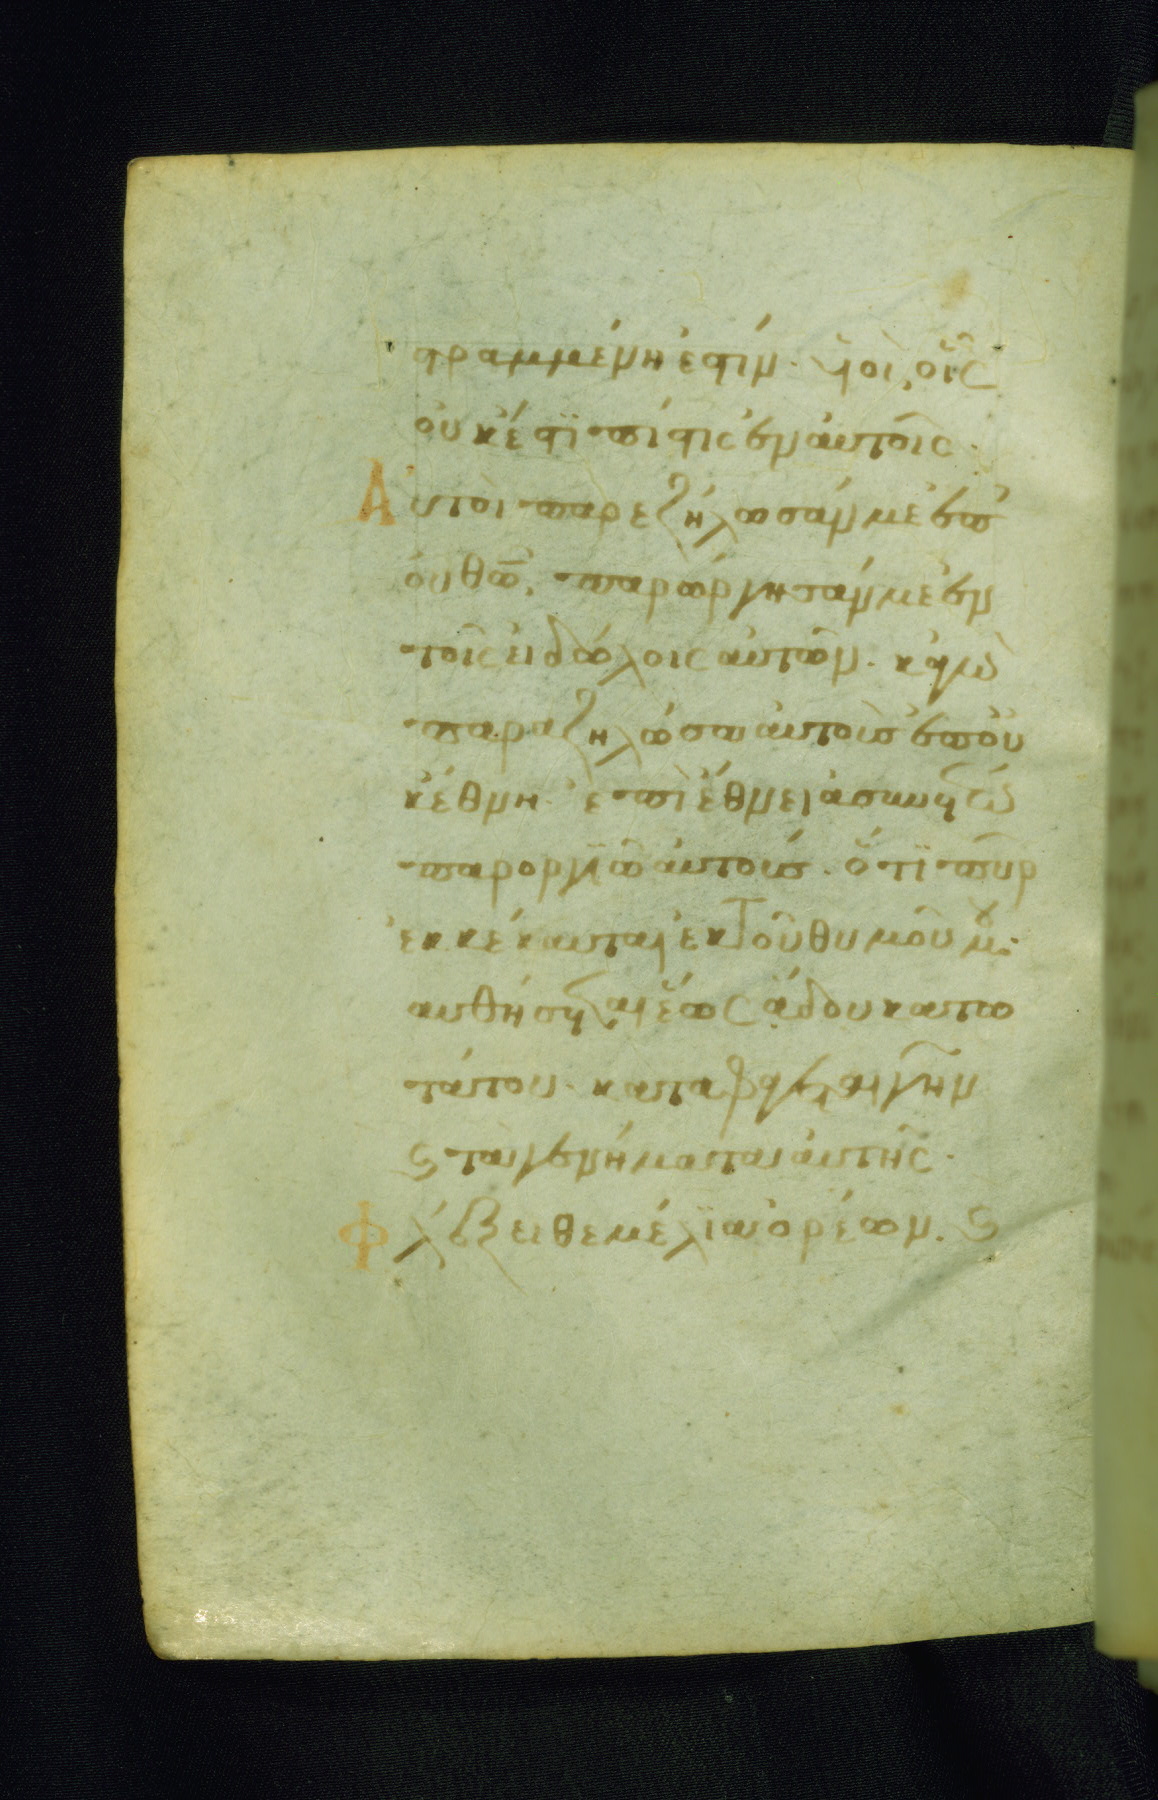 στραμμένη ἐστίν· υἱοὶ οἷς
οὐκ ἔστι πίστις ἐν αὐτοῖς·
Αὐτοὶ παρεζήλωσάν με ἐπ'
οὐ θῶ, παρώργησάν με ἐν
τοῖς εἰδώλοις αὐτῶν· κἀγὼ
παραζηλώσω αὐτοὺς ἐπ' οὐ
κ ἔθνη· ἐπὶ ἔθνει ἀσυνέτω
παροργιῶ αὐτούς· ὅτι πῦρ
ἐκκέκαυται ἐκ τοῦ θυμοῦ μου·
καυθήσεται ἕως ἅδου κατω
τάτου· καταφάγεται γῆν
ϛ τὰ γενήματα αὐτῆς·
Φλέξει θεμέλια ὀρέων· ϛ